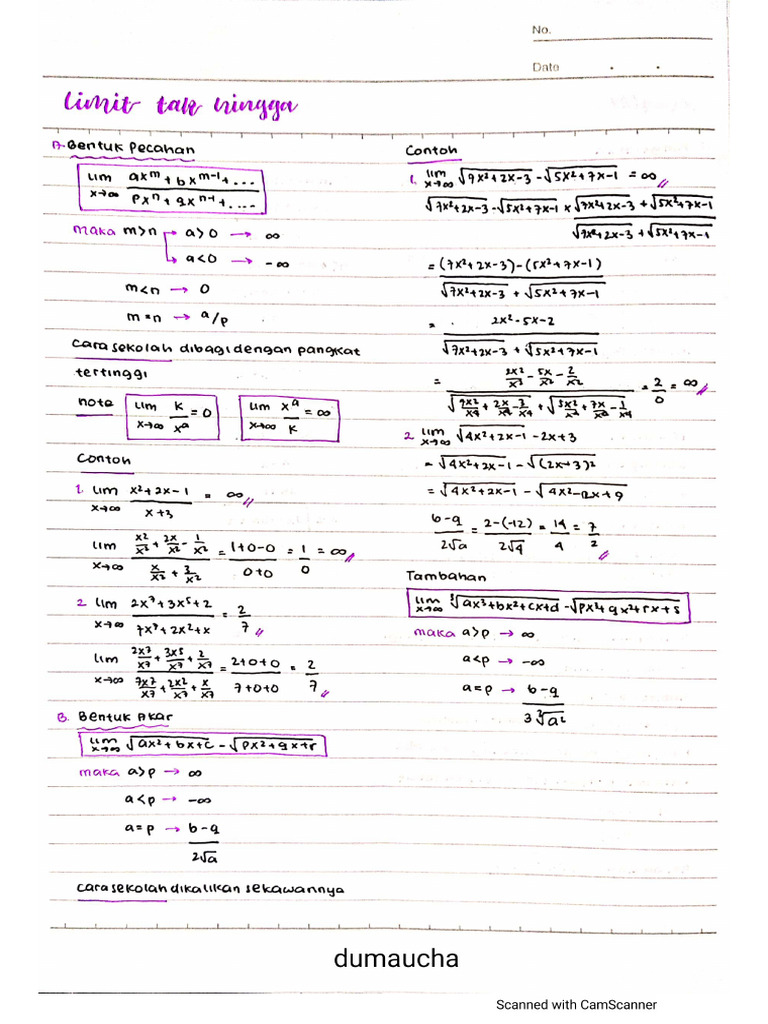 No.
Date
Limit tak hingga
A. Bentuk Pecahan
lim x→∞ (ax^m + bx^(m-1) + ...)/(px^n + qx^(n-1) + ....)
maka m>n → a>0 → ∞
→ a<0 → -∞
m<n → 0
m=n → a/p
Cara sekolah dibagi dengan pangkat
tertinggi
note lim x→∞ k/x^a = 0 lim x→∞ x^a/k = ∞
Contoh
1. lim x→∞ (x²+2x-1)/(x+3) = ∞ //
lim x→∞ (x²/x² + 2x/x² - 1/x²)/(x/x² + 3/x²) = (1+0-0)/(0+0) = 1/0 = ∞ //
2. lim x→∞ (2x⁷+3x⁵+2)/(7x⁷+2x²+x) = 2/7 //
lim x→∞ (2x7/x7 + 3x5/x7 + 2/x7)/(7x7/x7 + 2x2/x7 + x/x7) = (2+0+0)/(7+0+0) = 2/7 //
B. Bentuk Akar
lim x→∞ √(ax²+bx+c) - √(px²+qx+r)
maka a>p → ∞
a<p → -∞
a=p → (b-q)/(2√a)
Cara sekolah dikalikan sekawannya
Contoh
1. lim x→∞ √(7x²+2x-3) - √(5x²+7x-1) = ∞ //
√(7x²+2x-3) - √(5x²+7x-1) × (√(7x²+2x-3) + √(5x²+7x-1))/(√(7x²+2x-3) + √(5x²+7x-1))
= ((7x²+2x-3)-(5x²+7x-1))/(√(7x²+2x-3) + √(5x²+7x-1))
= (2x²-5x-2)/(√(7x²+2x-3) + √(5x²+7x-1))
= (2x²/x² - 5x/x² - 2/x²)/(√(7x²/x⁴ + 2x/x⁴ - 3/x⁴) + √(5x²/x⁴ + 7x/x⁴ - 1/x⁴)) = 2/0 = ∞ //
2. lim x→∞ √(4x²+2x-1) - 2x+3
= √(4x²+2x-1) - √((2x+3)²)
= √(4x²+2x-1) - √(4x²-12x+9)
(b-q)/(2√a) = (2-(-12))/(2√4) = 14/4 = 7/2 //
Tambahan
lim x→∞ ³√(ax³+bx²+cx+d) - √(px³+qx²+rx+s)
maka a>p → ∞
a<p → -∞
a=p → (b-q)/(3 ³√a²)
dumaucha
Scanned with CamScanner